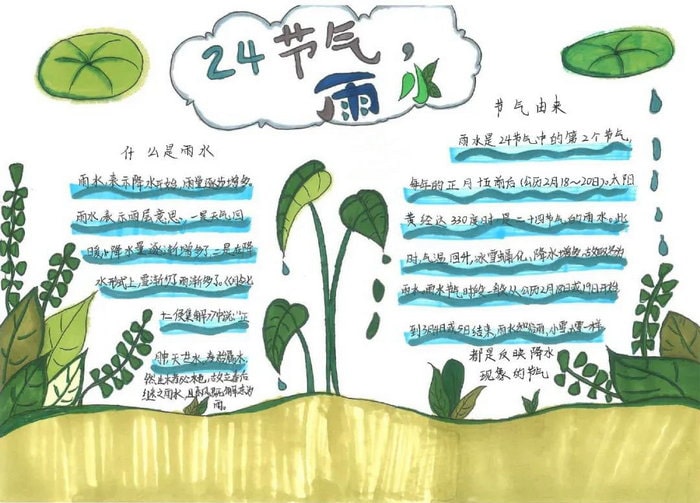 24节气,
雨水
什么是雨水
雨水,表示降水开始,雨量逐步增多。
雨水,表示两层意思,一是天气回
暖,降水量逐渐增多了,二是在降
水形式上,雪渐少了,雨渐多了。《月令七
十二候集解》中说:"正
月中,天一生水。
节气由来
雨水是24节气中的第2个节气,
每年的正月十五前后(公历2月18~20日),太阳
黄经达330度时,是二十四节气的雨水。此
时,气温回升、冰雪融化、降水增多,故取名为
雨水。雨水节气时段一般从公历2月18日或19日开始
到3月4日或5日结束。雨水和谷雨、小雪、大雪一样
都是反映降水
现象的节气